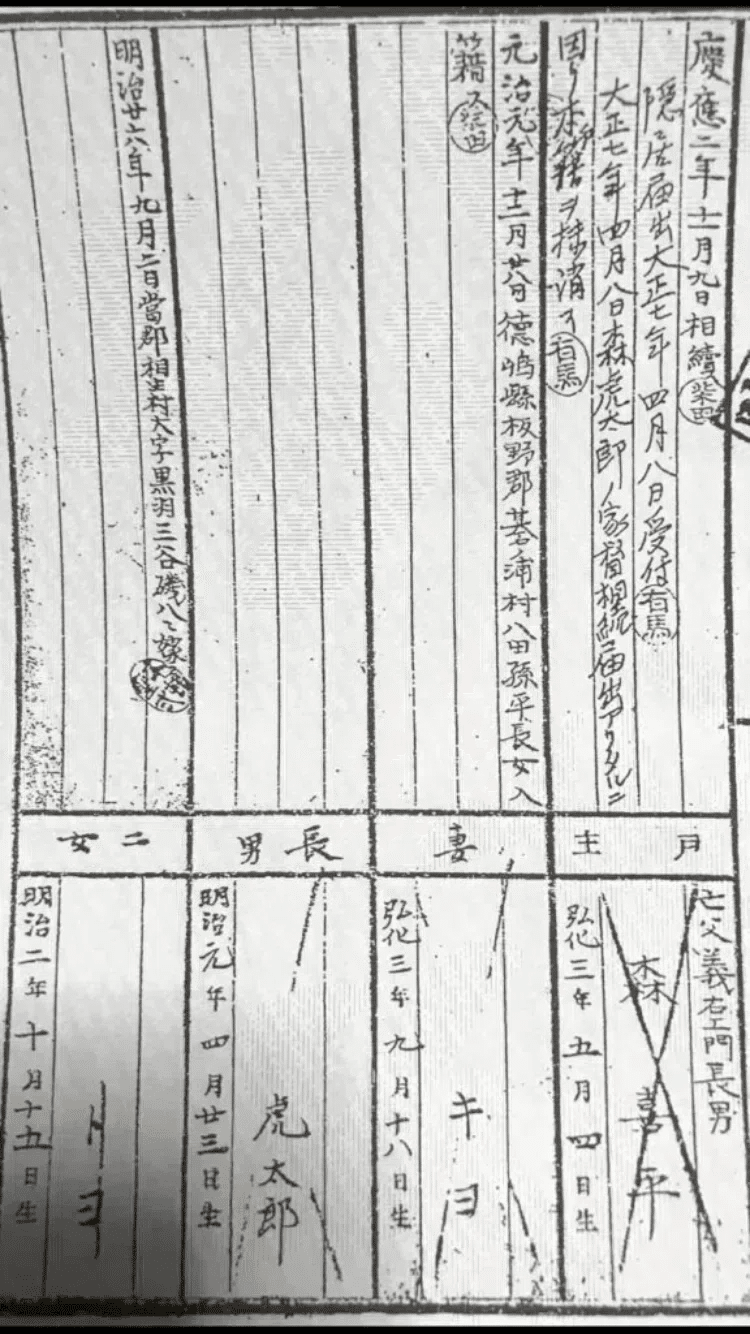 慶應二年十一月九日相續
柴田
隠居届出大正七年四月八日受付
有馬
大正七年四月八日森虎太郎ノ家督相続届出アリタルニ
因リ本籍ヲ抹消ス
有馬
戸主
亡父義右エ門長男
森喜平
弘化三年五月四日生
元治元年十二月廿八日德嶋縣板野郡基浦村八田孫平長女入
籍ス
柴田
妻
キヨ
弘化三年九月十八日生
長男
虎太郎
明治元年四月廿三日生
明治廿六年九月二日當郡相生村大字黒羽三谷磯八ヘ嫁
二女
トヨ
明治二年十月十五日生